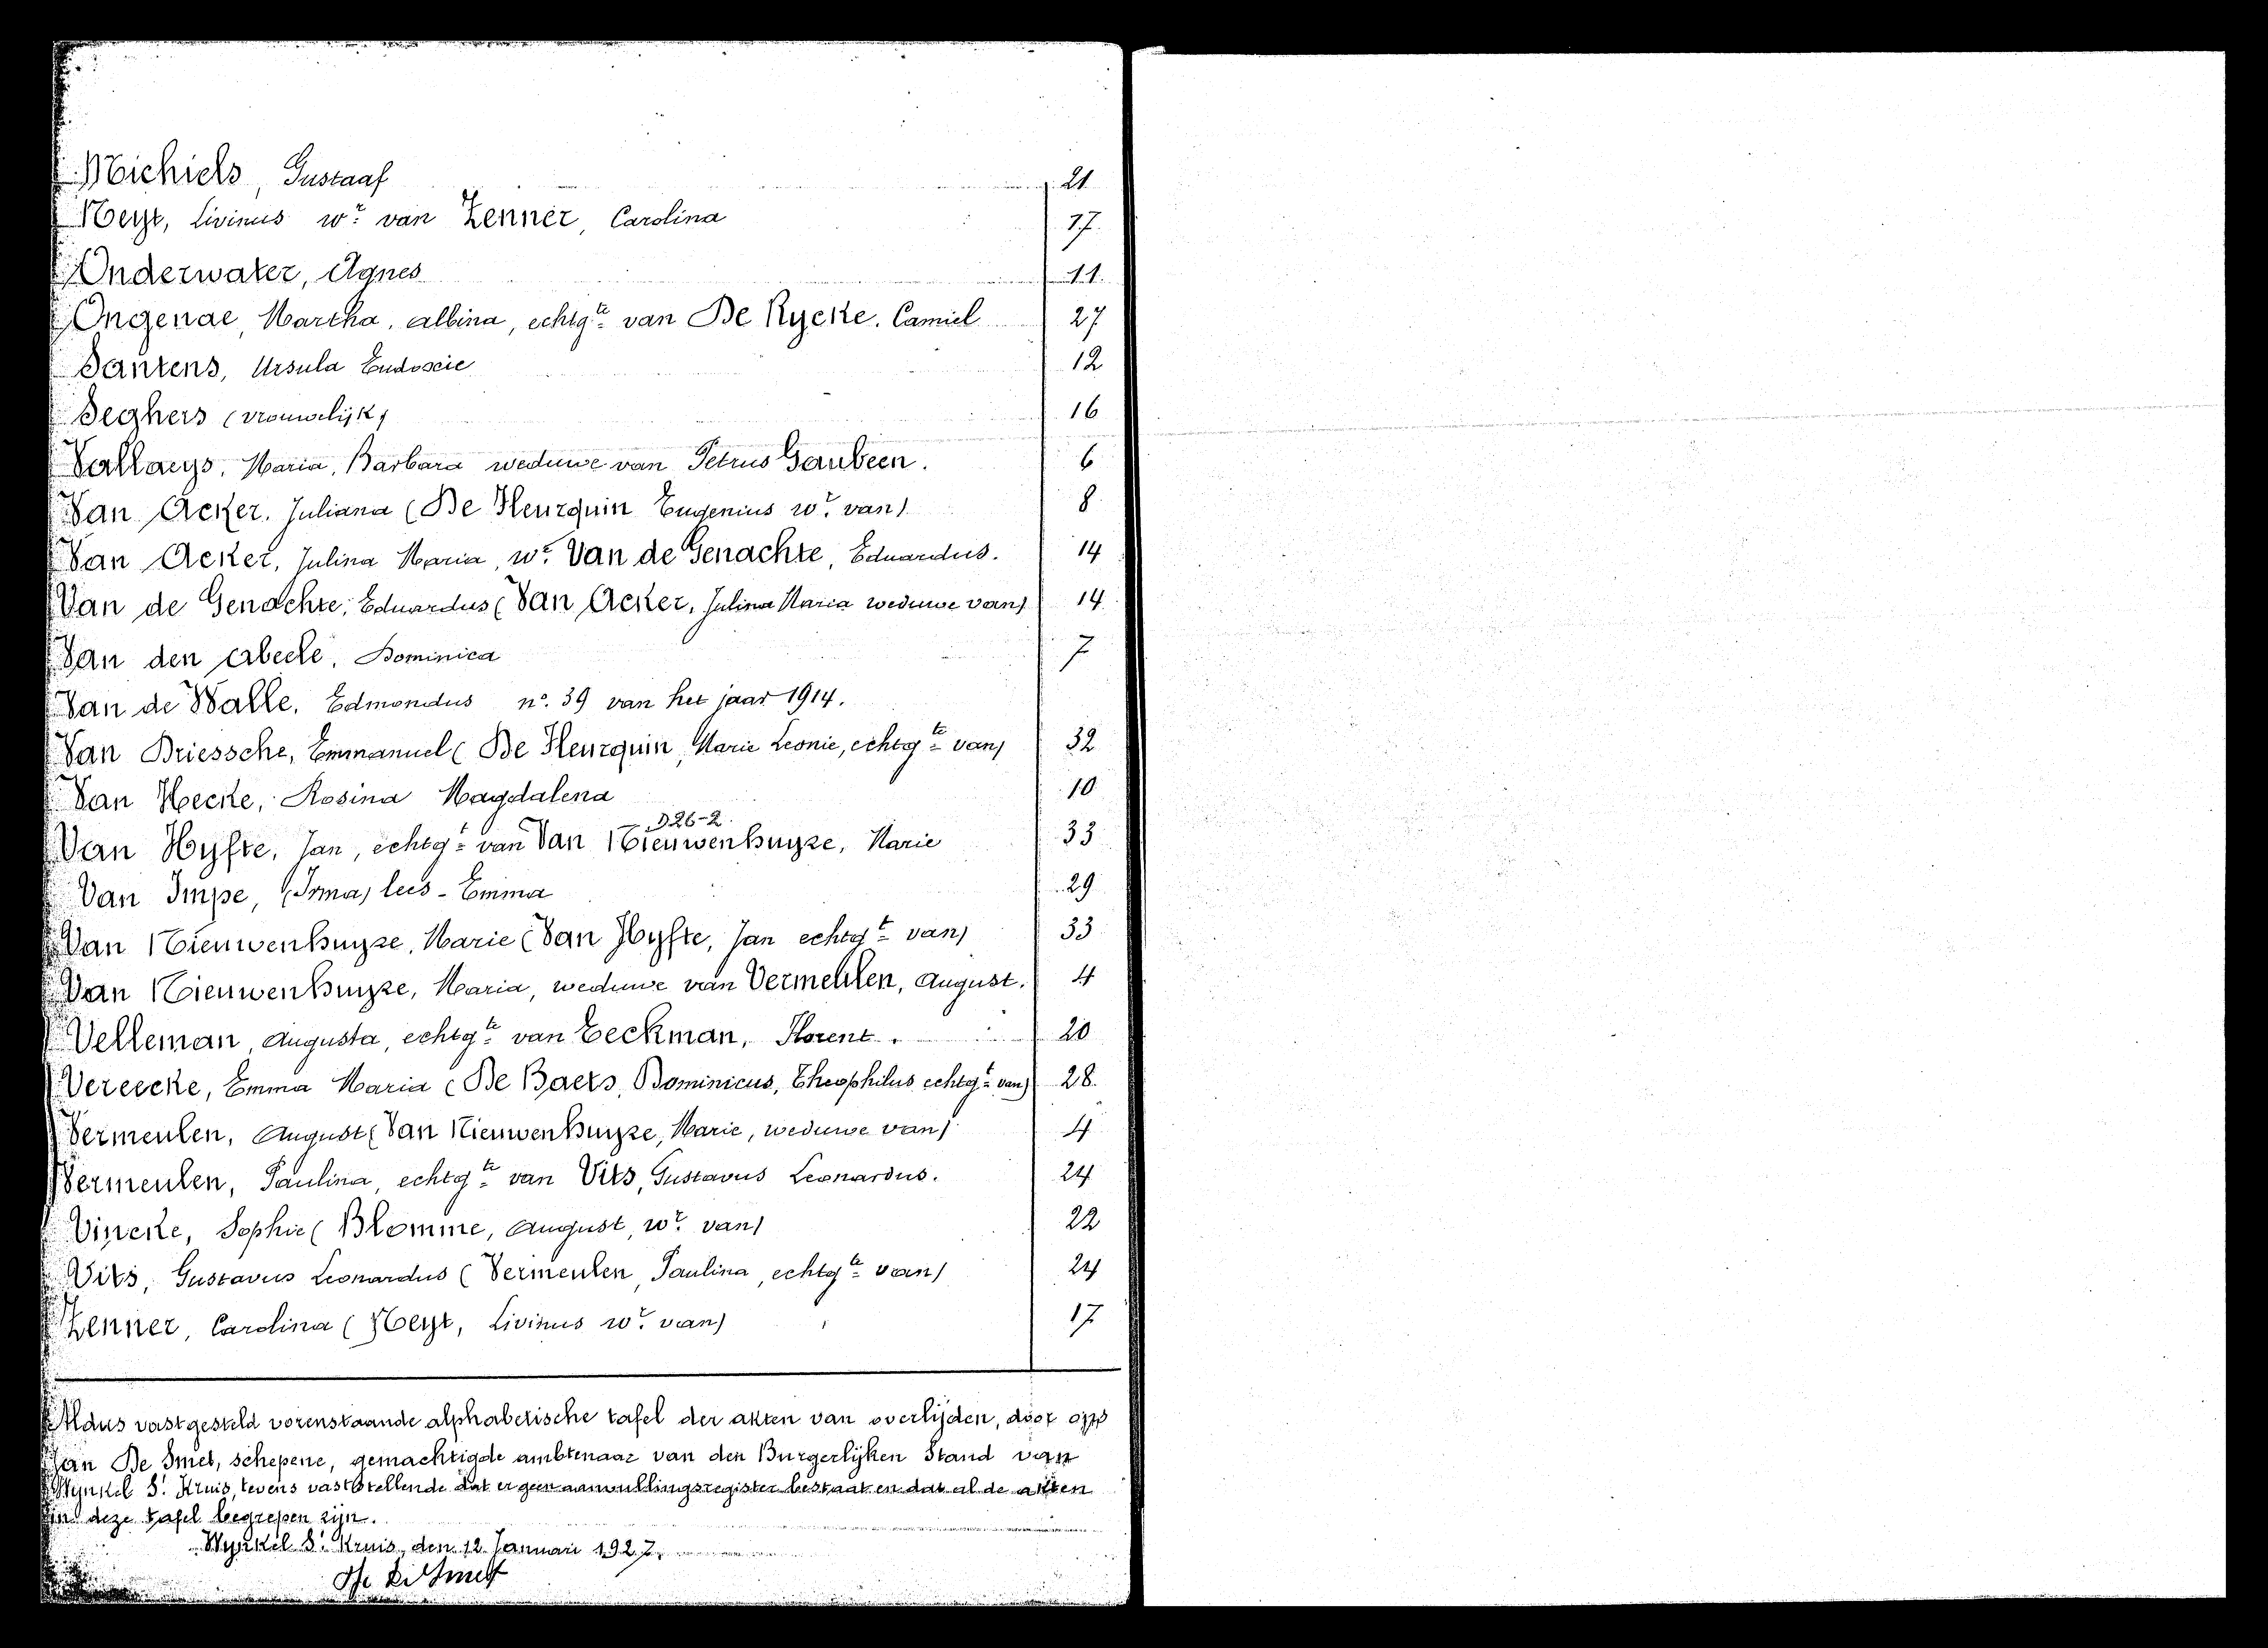 Michiels, Gustaaf 21
Neyt, Livinus wr van Zenner, Carolina 17
Onderwater, Agnes 11
Ongenae, Martha, Albina, echtgte van De Rycke, Camiel 27
Santens, Ursula Eudoxie 12
Seghers (vrouwelijk) 16
Vallaeys, Maria, Barbara weduwe van Petrus Saubeen. 6
Van Acker, Juliana (De Heurquin Eugenius wr van) 8
Van Acker, Julina Maria, we Van de Genachte, Eduardus. 14
Van de Genachte, Eduardus (Van Acker, Julina Maria weduwe van) 14
Van den Abeele, Dominica 7
Van de Walle, Edmondus no. 39 van het jaar 1914.
Van Driessche, Emmanuel (De Heurquin, Marie Leonie, echtgte van) 32
Van Hecke, Rosina Magdalena 10
D26-2
Van Hyfte, Jan, echtgt van Van Nieuwenhuyze, Marie 33
Van Impe, (Irma) lees - Emma 29
Van Nieuwenhuyse, Marie (Van Hyfte, Jan echtgt van) 33
Van Nieuwenhuyze, Maria, weduwe van Vermeulen, August. 4
Velleman, Augusta, echtgte van Eeckman, Florent. 20
Vereecke, Emma Maria (De Baets, Dominicus, Theophilus echtgt van) 28.
Vermeulen, August (Van Nieuwenhuyze, Marie, weduwe van) 4
Vermeulen, Paulina, echtgte van Vits, Gustavus Leonardus. 24
Vincke, Sophie (Blomme, August, wr van) 22
Vits, Gustavus Leonardus (Vermeulen, Paulina, echtgte van) 24
Zenner, Carolina (Neyt, Livinus wr van) 17
Aldus vastgesteld vorenstaande alphabetische tafel der akten van overlijden, door ons
Jan De Smet, schepene, gemachtigde ambtenaar van den Burgerlijken Stand van
Wynkel St Kruis, tevens vaststellende dat er geen aanvullingsregister bestaat en dat al de akten
in deze tafel begrepen zijn.
Wynkel St Kruis, den 12 Januari 1927.
De Smet